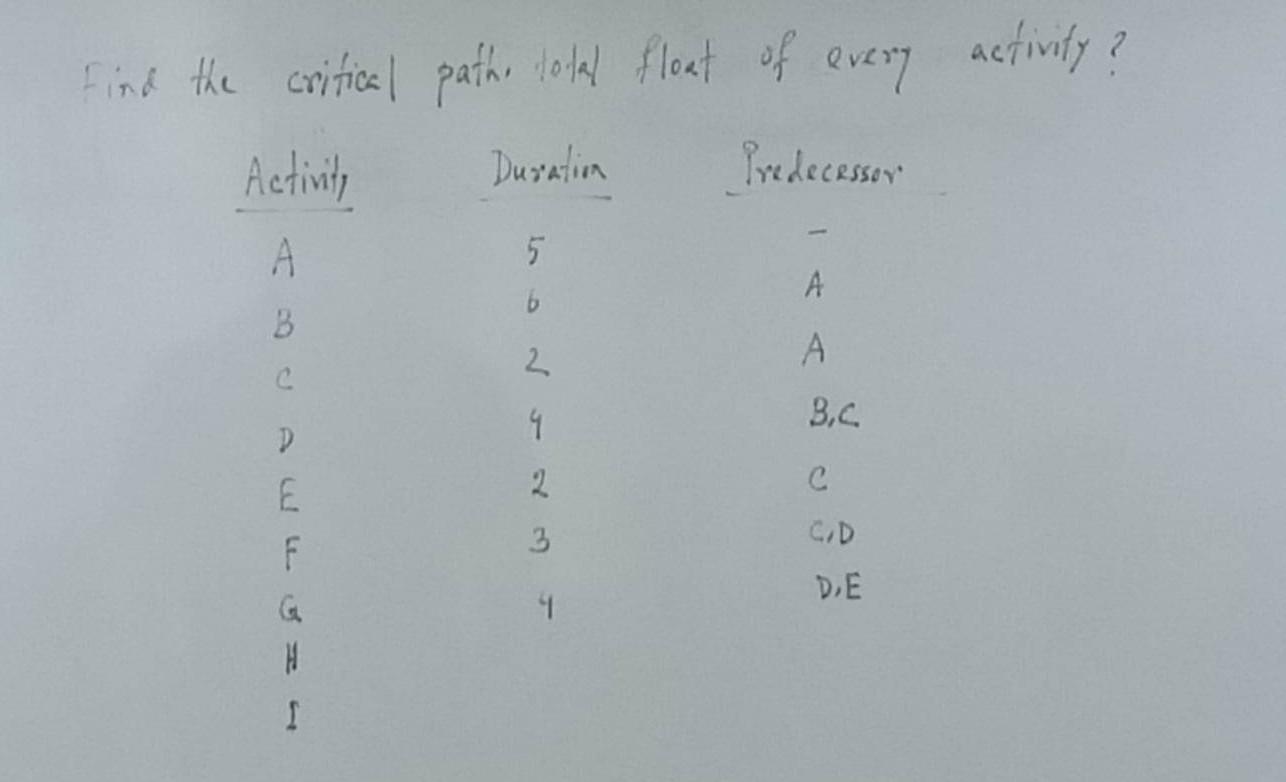 Find the critical path, total float of every activity?
Activity Duration Predecessor
A 5 -
B 6 A
C 2 A
D 4 B,C
E 2 C
F 3 C,D
G 4 D,E
H
I